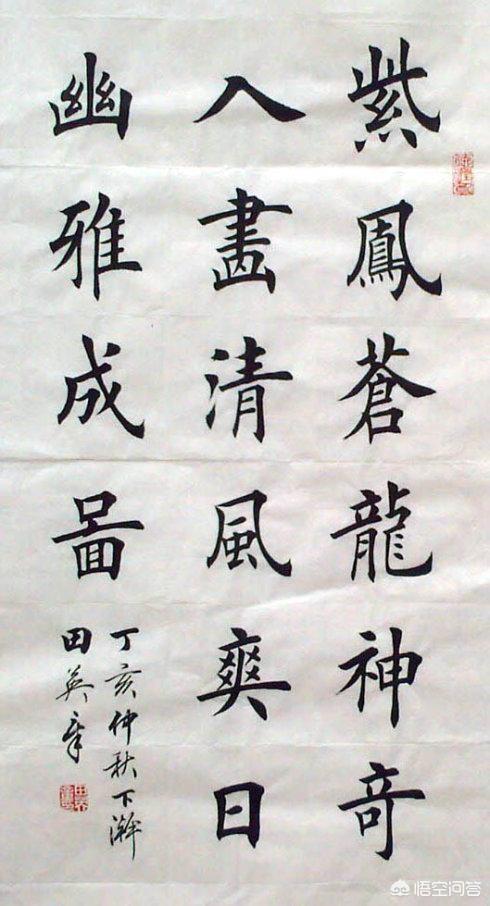 紫鳳蒼龍神奇
入畫清風爽日
幽雅成啚
丁亥仲秋下澣
田英章
悟空问答